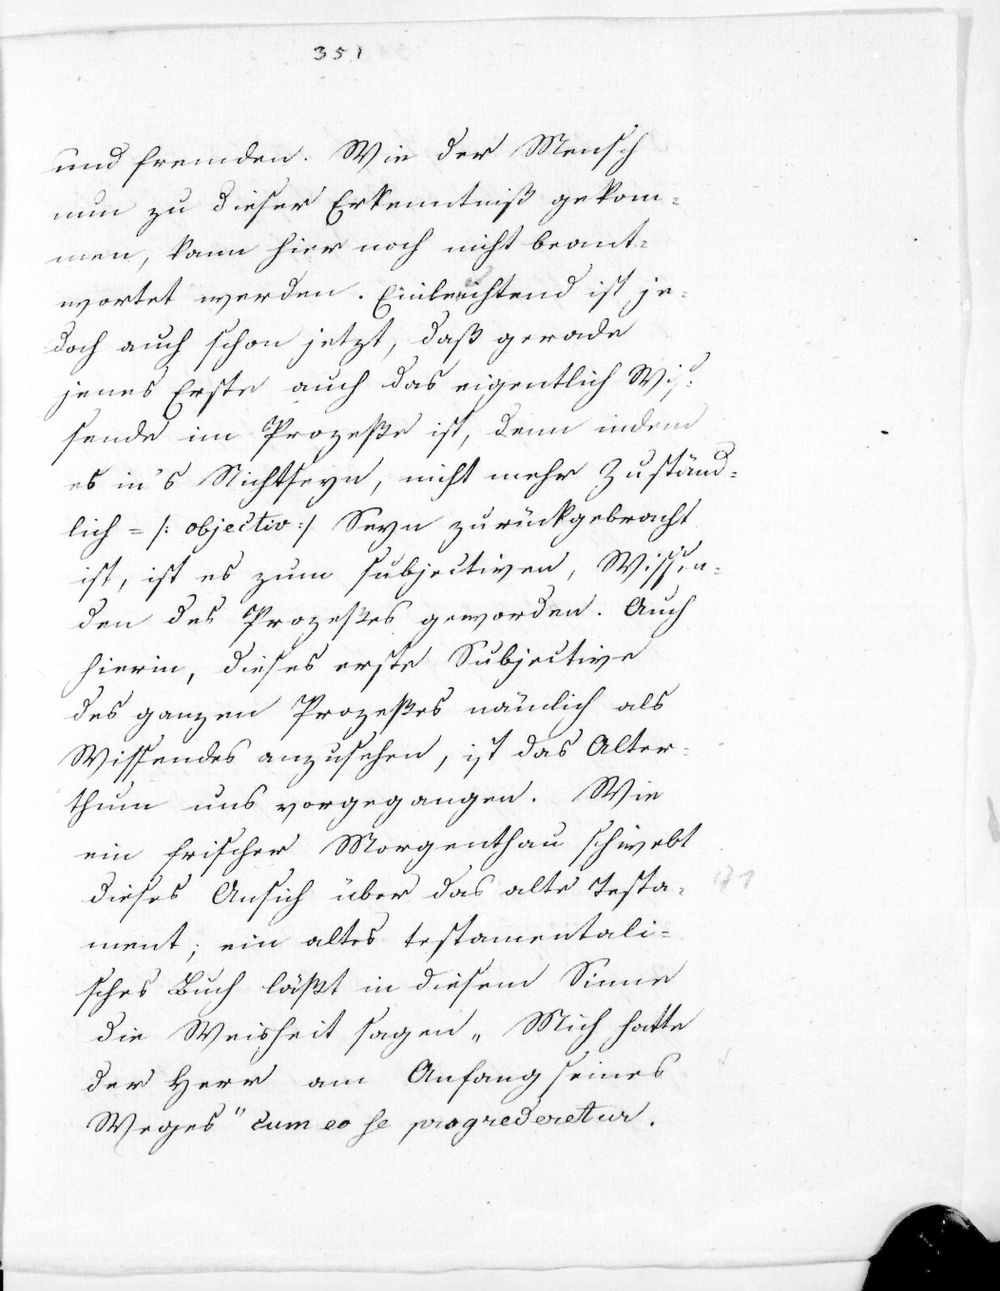 351
und fremden. Wie der Mensch
nun zu dieser Erkenntniß gekom=
men, kann hier noch nicht beant=
wortet werden. Einleuchtend ist je=
doch auch schon jetzt, daß gerade
jenes Erste auch das eigentlich Wis=
sende im Prozeße ist, denn indem
es in's Nichtseyn, nicht mehr Zuständ=
lich = /: objectiv :/ Seyn zurückgebracht
ist, ist es zum subjectiven, Wissen=
den des Prozeßes geworden. Auch
hierin, dieses erste Subjective
des ganzen Prozeßes nämlich als
Wissendes anzusehen, ist das Alter=
thum uns vorgegangen. Wie
ein frischer Morgenthau schwebt
dieses Ansich über das alte Testa=
ment; ein altes testamentali=
sches Buch läßt in diesem Sinne
die Weisheit sagen „ Mich hatte
der Herr am Anfang seines
Weges" cum eo se progrederetur.